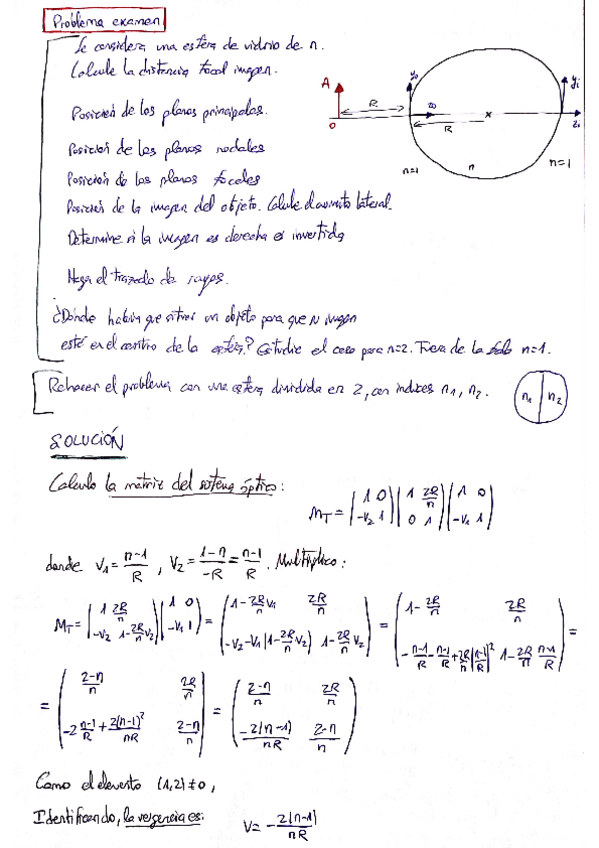 Problema examen
Se considera una esfera de vidrio de n.
Calcule la distancia focal imagen.
Posición de los planos principales.
Posición de los planos nodales
Posición de los planos focales
Posición de la imagen del objeto. Calcule el aumento lateral.
Determine si la imagen es derecha o invertida
Haga el trazado de rayos.
¿Dónde habría que situar un objeto para que su imagen
esté en el centro de la esfera? Estudie el caso para n=2. Fuera de la n=1.
A
O
R
R
n=1
n
n=1
Rehacer el problema con una esfera dividida en 2, con índices n1, n2.
n1 n2
SOLUCIÓN
Calculo la matriz del sistema óptico:
M_T = (1 0; -V2 1)(1 2R/n; 0 1)(1 0; -V1 1)
donde V1 = n-1/R, V2 = 1-n/-R = n-1/R. Multiplico:
M_T = (1 2R/n; -V2 1-2R/n V2)(1 0; -V1 1) = (1-2R/n V1 2R/n; -V2-V1(1-2R/n V2) 1-2R/n V2) = (1-2R/n n-1/R 2R/n; -n-1/R-n-1/R+2R/n(n-1/R)^2 1-2R/n n-1/R) =
= (2-n/n 2R/n; -2 n-1/R + 2(n-1)^2/nR 2-n/n) = (2-n/n 2R/n; -2(n-1)/nR 2-n/n)
Como el elemento (1,2) ≠ 0,
Identificando, la vergencia es: V = -2(n-1)/nR